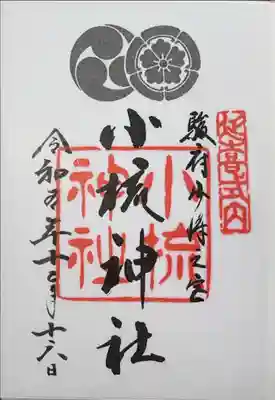 延喜式内
駿府少将之宮
小梳神社
小梳神社
令和五年十二月十六日